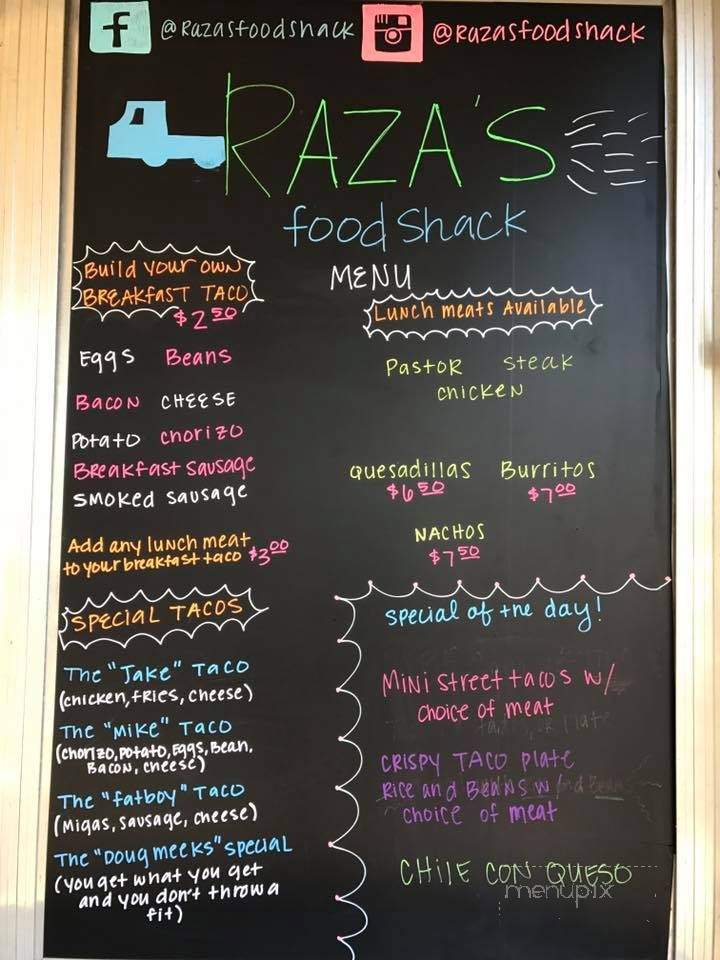 @Razasfoodshack
@Razasfoodshack
RAZA'S
food shack
MENU
Build your own
BREAKfAST TACO
$2.50
Eggs Beans
BACON CHEESE
Potato chorizo
Breakfast sausage
smoked sausage
Add any lunch meat
to your breakfast taco $3.00
SPECIAL TACOS
The "Jake" Taco
(chicken, fries, cheese)
The "Mike" Taco
(chorizo, potato, Eggs, Bean,
Bacon, cheese)
The "fatboy" Taco
(Migas, sausage, cheese)
The "Doug meeks" special
(you get what you get
and you don't throw a
fit)
Lunch meats Available
Pastor steak
chicken
Quesadillas Burritos
$6.50 $7.00
NACHOS
$7.50
special of the day!
Mini street tacos w/
choice of meat
CRISPY TACO plate
Rice and BEANS w/
choice of meat
CHILE CON QUESO
menupix